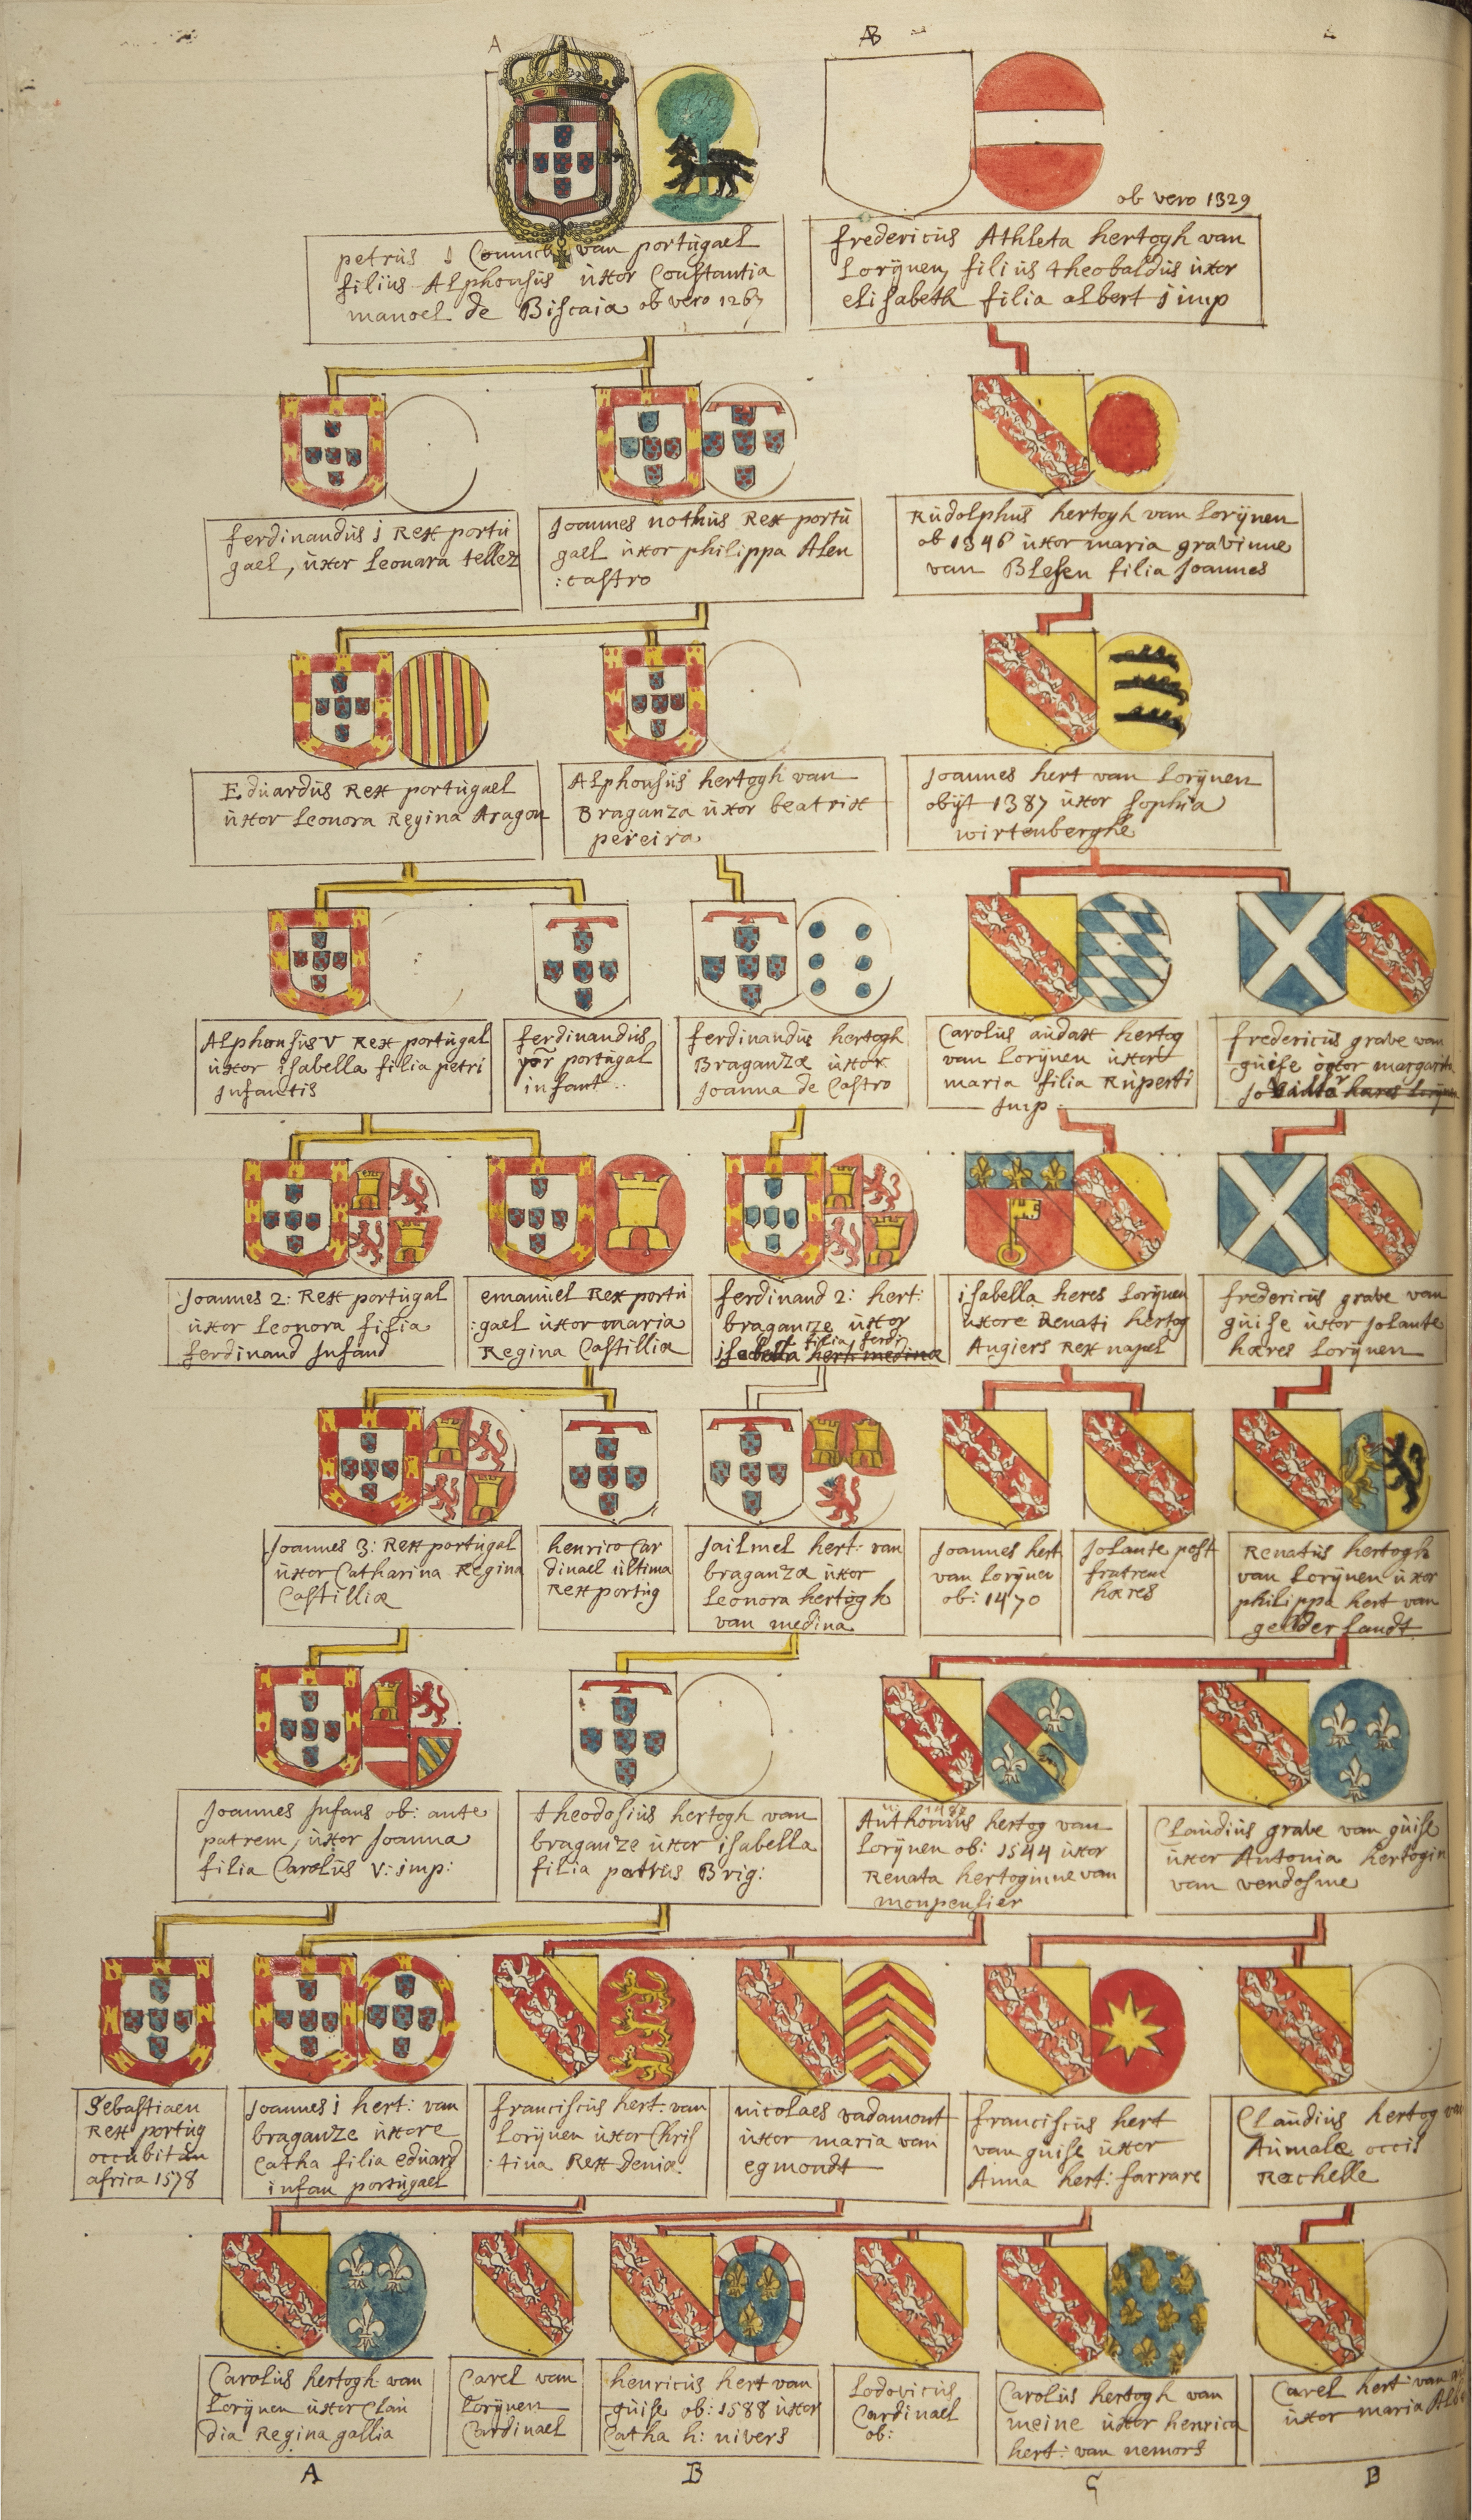 A
AB
ob vero 1329
petrus 1 Connick van portugael
filius Alphonsus uxor Constantia
manoel de Biscaia ob vero 1267
fredericus Athleta hertogh van
Lorynen, filius theobaldus uxor
elisabeth filia albert 1 imp
ferdinandus 1 Rex portu
gael, uxor Leonara tellez
Joannes nothus Rex portu
gael uxor philippa Alen
:castro
Rudolphus hertogh van Lorynen
ob 1346 uxor maria gravinne
van Blesen filia Joannes
Eduardus Rex portugael
uxor Leonora Regina Aragon
Alphonsus hertogh van
Braganza uxor beatrix
pereira
Joannes hert van Lorynen
obijt 1387 uxor sophia
wirtenberghe
Alphonsus V Rex portugal
uxor isabella filia petri
Infantis
ferdinandus
portugal
infant
ferdinandus hertogh
Braganza uxor
Joanna de Castro
Carolus audax hertog
van Lorynen uxor
maria filia Ruperti
Imp
fredericus grave van
guise uxor margarita
Joannes 2: Rex portugal
uxor Leonora filia
ferdinand Infand
emanuel Rex portu
:gael uxor maria
Regina Castillia
ferdinand 2: hert:
braganze uxor
filia ferdi
isabella hert medina
isabella heres Lorynen
uxore Renati hertog
Angiers Rex napel
fredericus grave van
guise uxor Jolante
hæres Lorynen
Joannes 3: Rex portugal
uxor Catharina Regina
Castilliæ
henrico Car
dinael ultima
Rex portug
Jailmel hert: van
braganza uxor
Leonora hertogh
van medina
Joannes hert
van Lorynen
ob: 1470
Jolante post
fratrem
hæres
Renatus hertogh
van Lorynen uxor
philippa hert van
gelderlandt
Joannes Infans ob: ante
patrem, uxor Joanna
filia Carolus V: imp:
theodosius hertogh van
braganze uxor isabella
filia petrus Brig:
Anthonius hertog van
Lorynen ob: 1544 uxor
Renata hertoginne van
monpensier
Claudius grave van guise
uxor Antonia hertogin
van vendosme
Sebastiaen
Rex portug
occubit in
africa 1578
Joannes 1 hert: van
braganze uxore
Catha filia eduard
infan portugael
franciscus hert: van
Lorynen uxor Chris
:tina Rex Deniæ
nicolaes vadamont
uxor maria van
egmondt
franciscus hert
van guise uxor
Anna hert: farrare
Claudius hertog van
Aumale occis
Rachelle
Carolus hertogh van
Lorynen uxor Clau
dia Regina gallia
Carel van
Lorynen
Cardinael
henricus hert van
guise ob: 1588 uxor
Catha h: nivers
Lodovicus
Cardinael
ob:
Carolus hertogh van
meine uxor henrica
hert: van nemors
Carel hert van
uxor maria
A
B
B